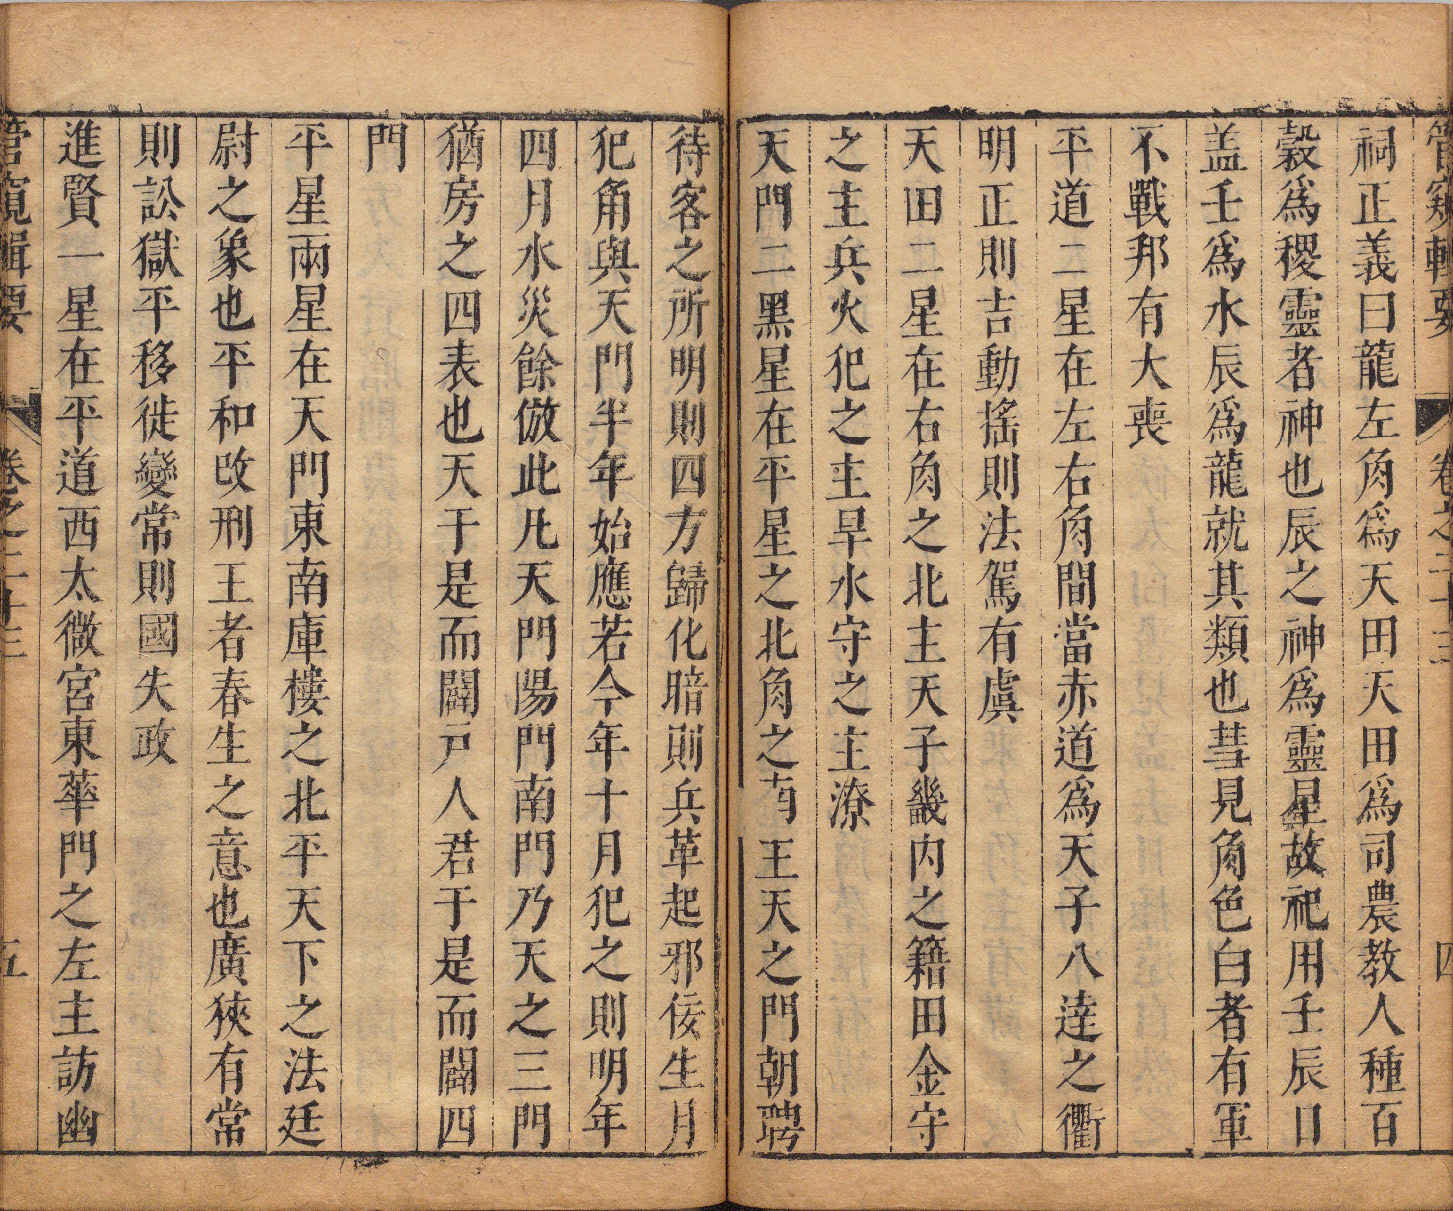 管窺輯要 卷之二十三 四
祠正義曰龍左角爲天田天田爲司農教人種百
穀爲稷靈者神也辰之神爲靈星故祀用壬辰日
盖壬爲水辰爲龍就其類也彗見角色白者有軍
不戰邦有大喪
平道二星在左右角間當赤道爲天子八達之衢
明正則吉動搖則法駕有虞
天田二星在右角之北主天子畿内之籍田金守
之主兵火犯之主旱水守之主潦
天門二黑星在平星之北角之南王天之門朝聘
待客之所明則四方歸化暗則兵革起邪佞生月
犯角與天門半年始應若今年十月犯之則明年
四月水災餘倣此凡天門陽門南門乃天之三門
猶房之四表也天于是而闢戸人君于是而闢四
門
平星兩星在天門東南庫樓之北平天下之法廷
尉之象也平和改刑王者春生之意也廣狹有常
則訟獄平移徙變常則國失政
進賢一星在平道西太微宮東華門之左主訪幽
管窺輯要 卷之二十三 五